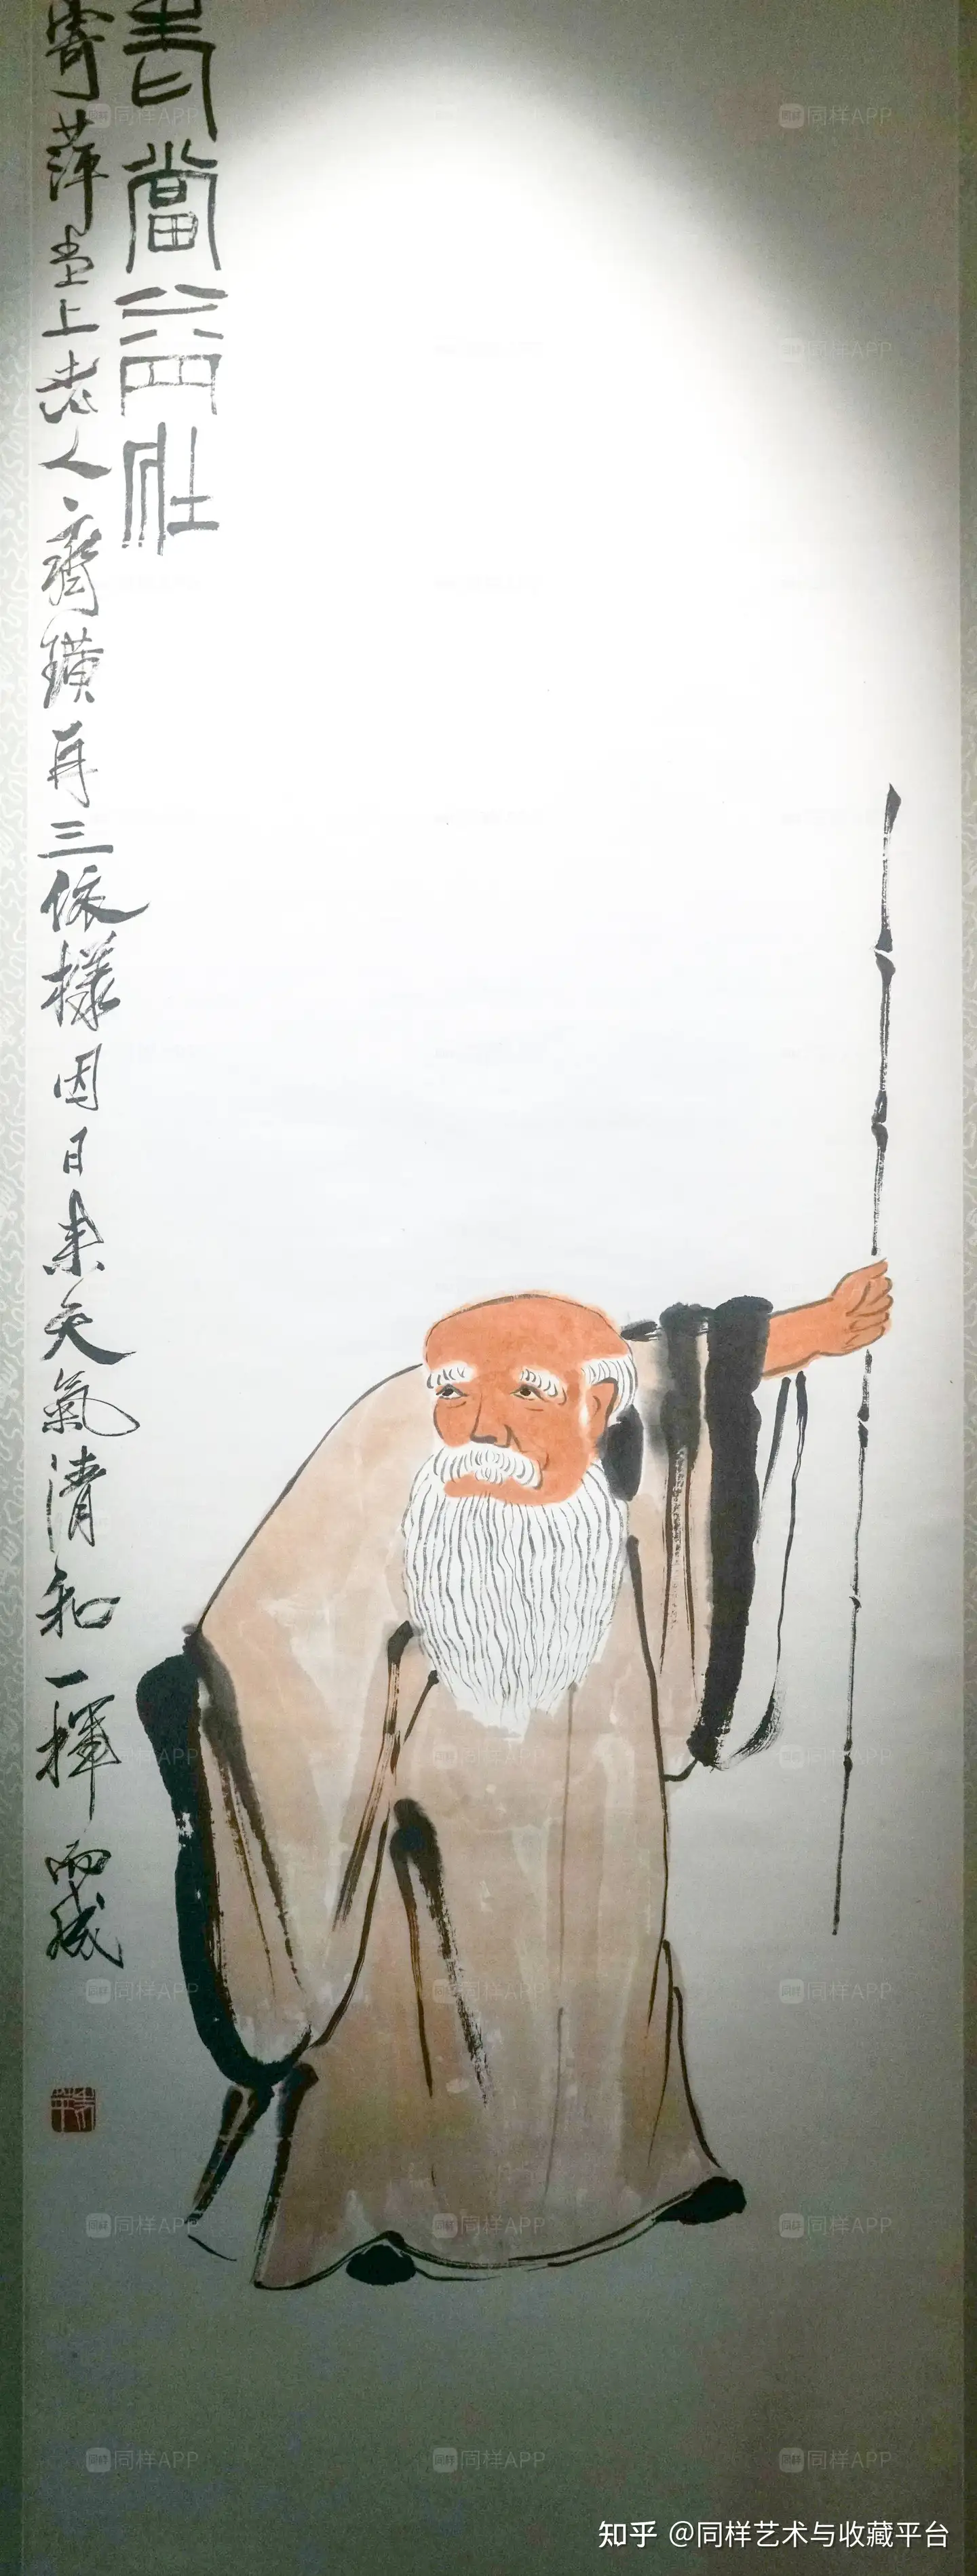 老當益壯
寄萍堂上老人齊璜再三依樣因日來天氣清和一揮而成
同样APP
同样APP
同样APP
同样APP
同样APP
同样APP
同样APP
同样APP
同样APP
同样APP
同样APP
同样APP
同样APP
同样APP
知乎 @同样艺术与收藏平台